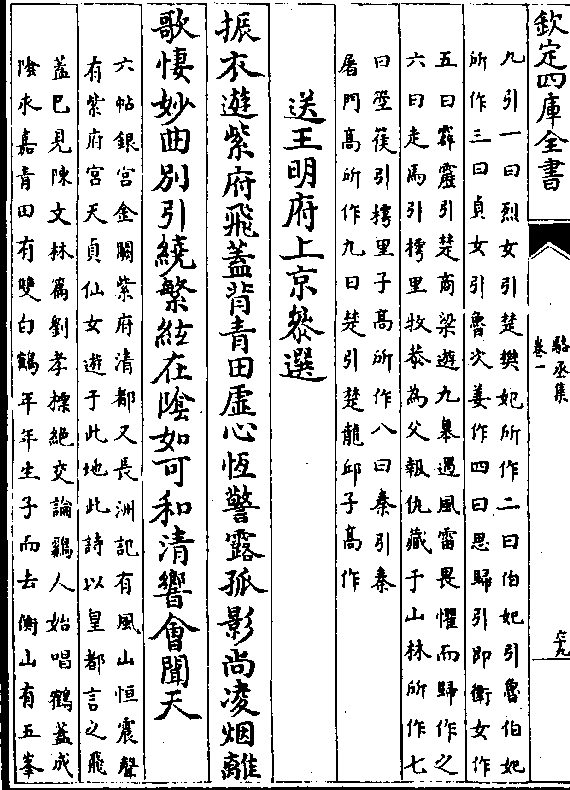 欽定四庫全書
駱丞集
卷一
六十九
九引一曰烈女引楚樊妃所作二曰伯妃引魯伯妃
所作三曰貞女引魯次姜作四曰思歸引即衛女作
五曰霹靂引楚商梁遊九皋遇風雷畏懼而歸作之
六曰走馬引摴里牧恭為父報仇藏于山林所作七
曰箜篌引摴里子高所作八曰秦引秦
屠門高所作九曰楚引楚龍邱子高作
送王明府上京參選
振衣遊紫府飛蓋背青田虛心恆警露孤影尚凌烟離
歌悽妙曲别引繞繁絃在陰如可和清響會聞天
六帖銀宫金闕紫府清都又長洲記有風山恒震聲
有紫府宫天貞仙女遊于此地此詩以皇都言之飛
蓋巳見陳文林篤劉孝摽絶交論鷄人始唱鶴蓋成
陰永嘉青田有雙白鶴年年生子而去衡山有五峯